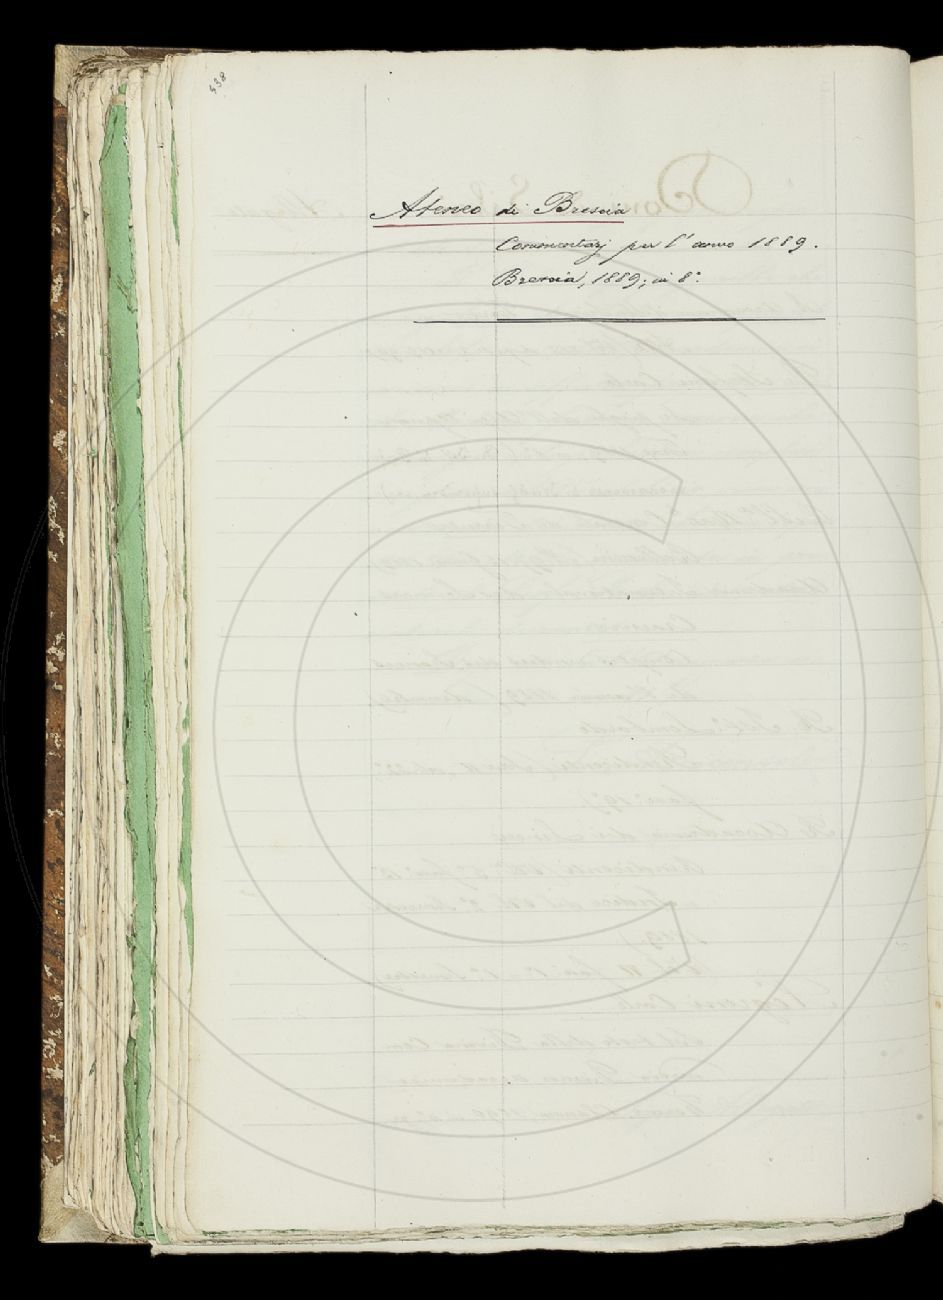 438
Ateneo di Brescia
Commentarj per l'anno 1889.
Brescia, 1889; in 8.°